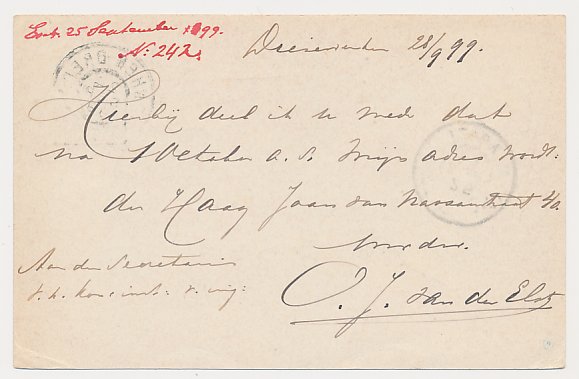 Ent. 25 September 1899.
No. 242.
28/9 99.
Hierbij deel ik u mede dat
na 1 October a. s. mijn adres wordt:
den Haag Jan van Nassaustraat 40.
Aan den Secretaris
v. h. Kon. inst. v. ing:
O. J. van der Elst